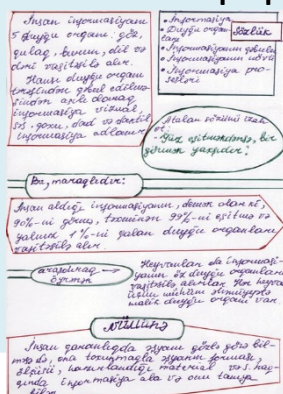 İnsan informasiyanı
5 duyğu orqanı: göz,
qulaq, burun, dil və
dəri vasitəsilə alır.
Hansı duyğu orqanı
tərəfindən qəbul edilmə-
sindən asılı olaraq
informasiya vizual
səs, qoxu, dad və taktil
informasiya adlanır.
• İnformasiya
• Duyğu orqan-
ları
Sözlük
• İnformasiyanın qəbulu
• İnformasiyanın növü
• İnformasiya pro-
sesləri
Atalar sözünü izah
et:
- Yüz eşitməkdənsə, bir
görmək yaxşıdır.
Bu, maraqlıdır:
İnsan aldığı informasiyanın, demək olar ki,
90%-ni görmə, təxminən 99%-ni eşitmə və
yalnız 1%-ni qalan duyğu orqanları
vasitəsilə alır.
Heyvanlar da informasi-
yanı öz duyğu orqanları
vasitəsilə alırlar. Hər heyvan
üçün mühüm əhəmiyyətə
malik duyğu orqanı var.
NÜMUNƏ
İnsan qaranlıqda əşyanı gözlə görə bil-
məsə də, ona toxunmaqla əşyanın forması,
ölçüsü, hazırlandığı material və s. haq-
qında informasiya ala və onu tanıya
bilər.